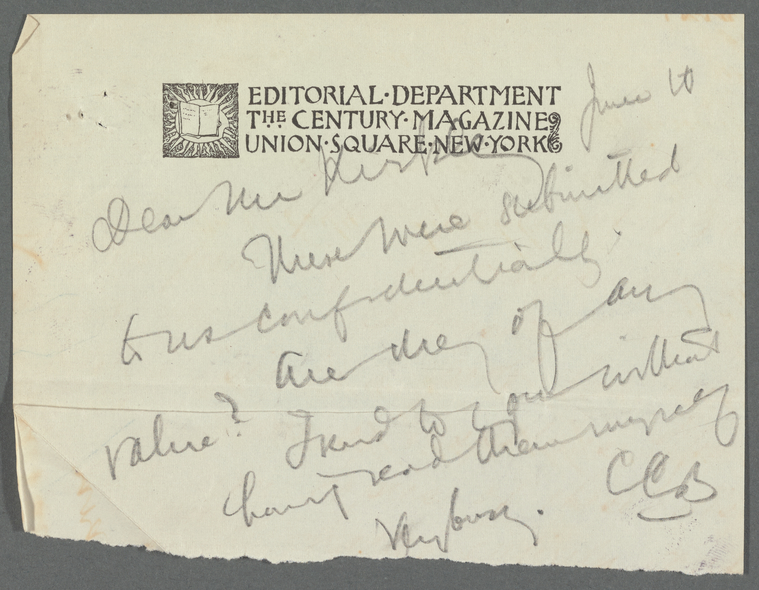 EDITORIAL·DEPARTMENT
THE CENTURY·MAGAZINE
UNION·SQUARE·NEW·YORK
June 10
Dear Mr
These were submitted
to us confidentially
Are they of any
value? I send to you without
having read them myself
Very busy. CCB